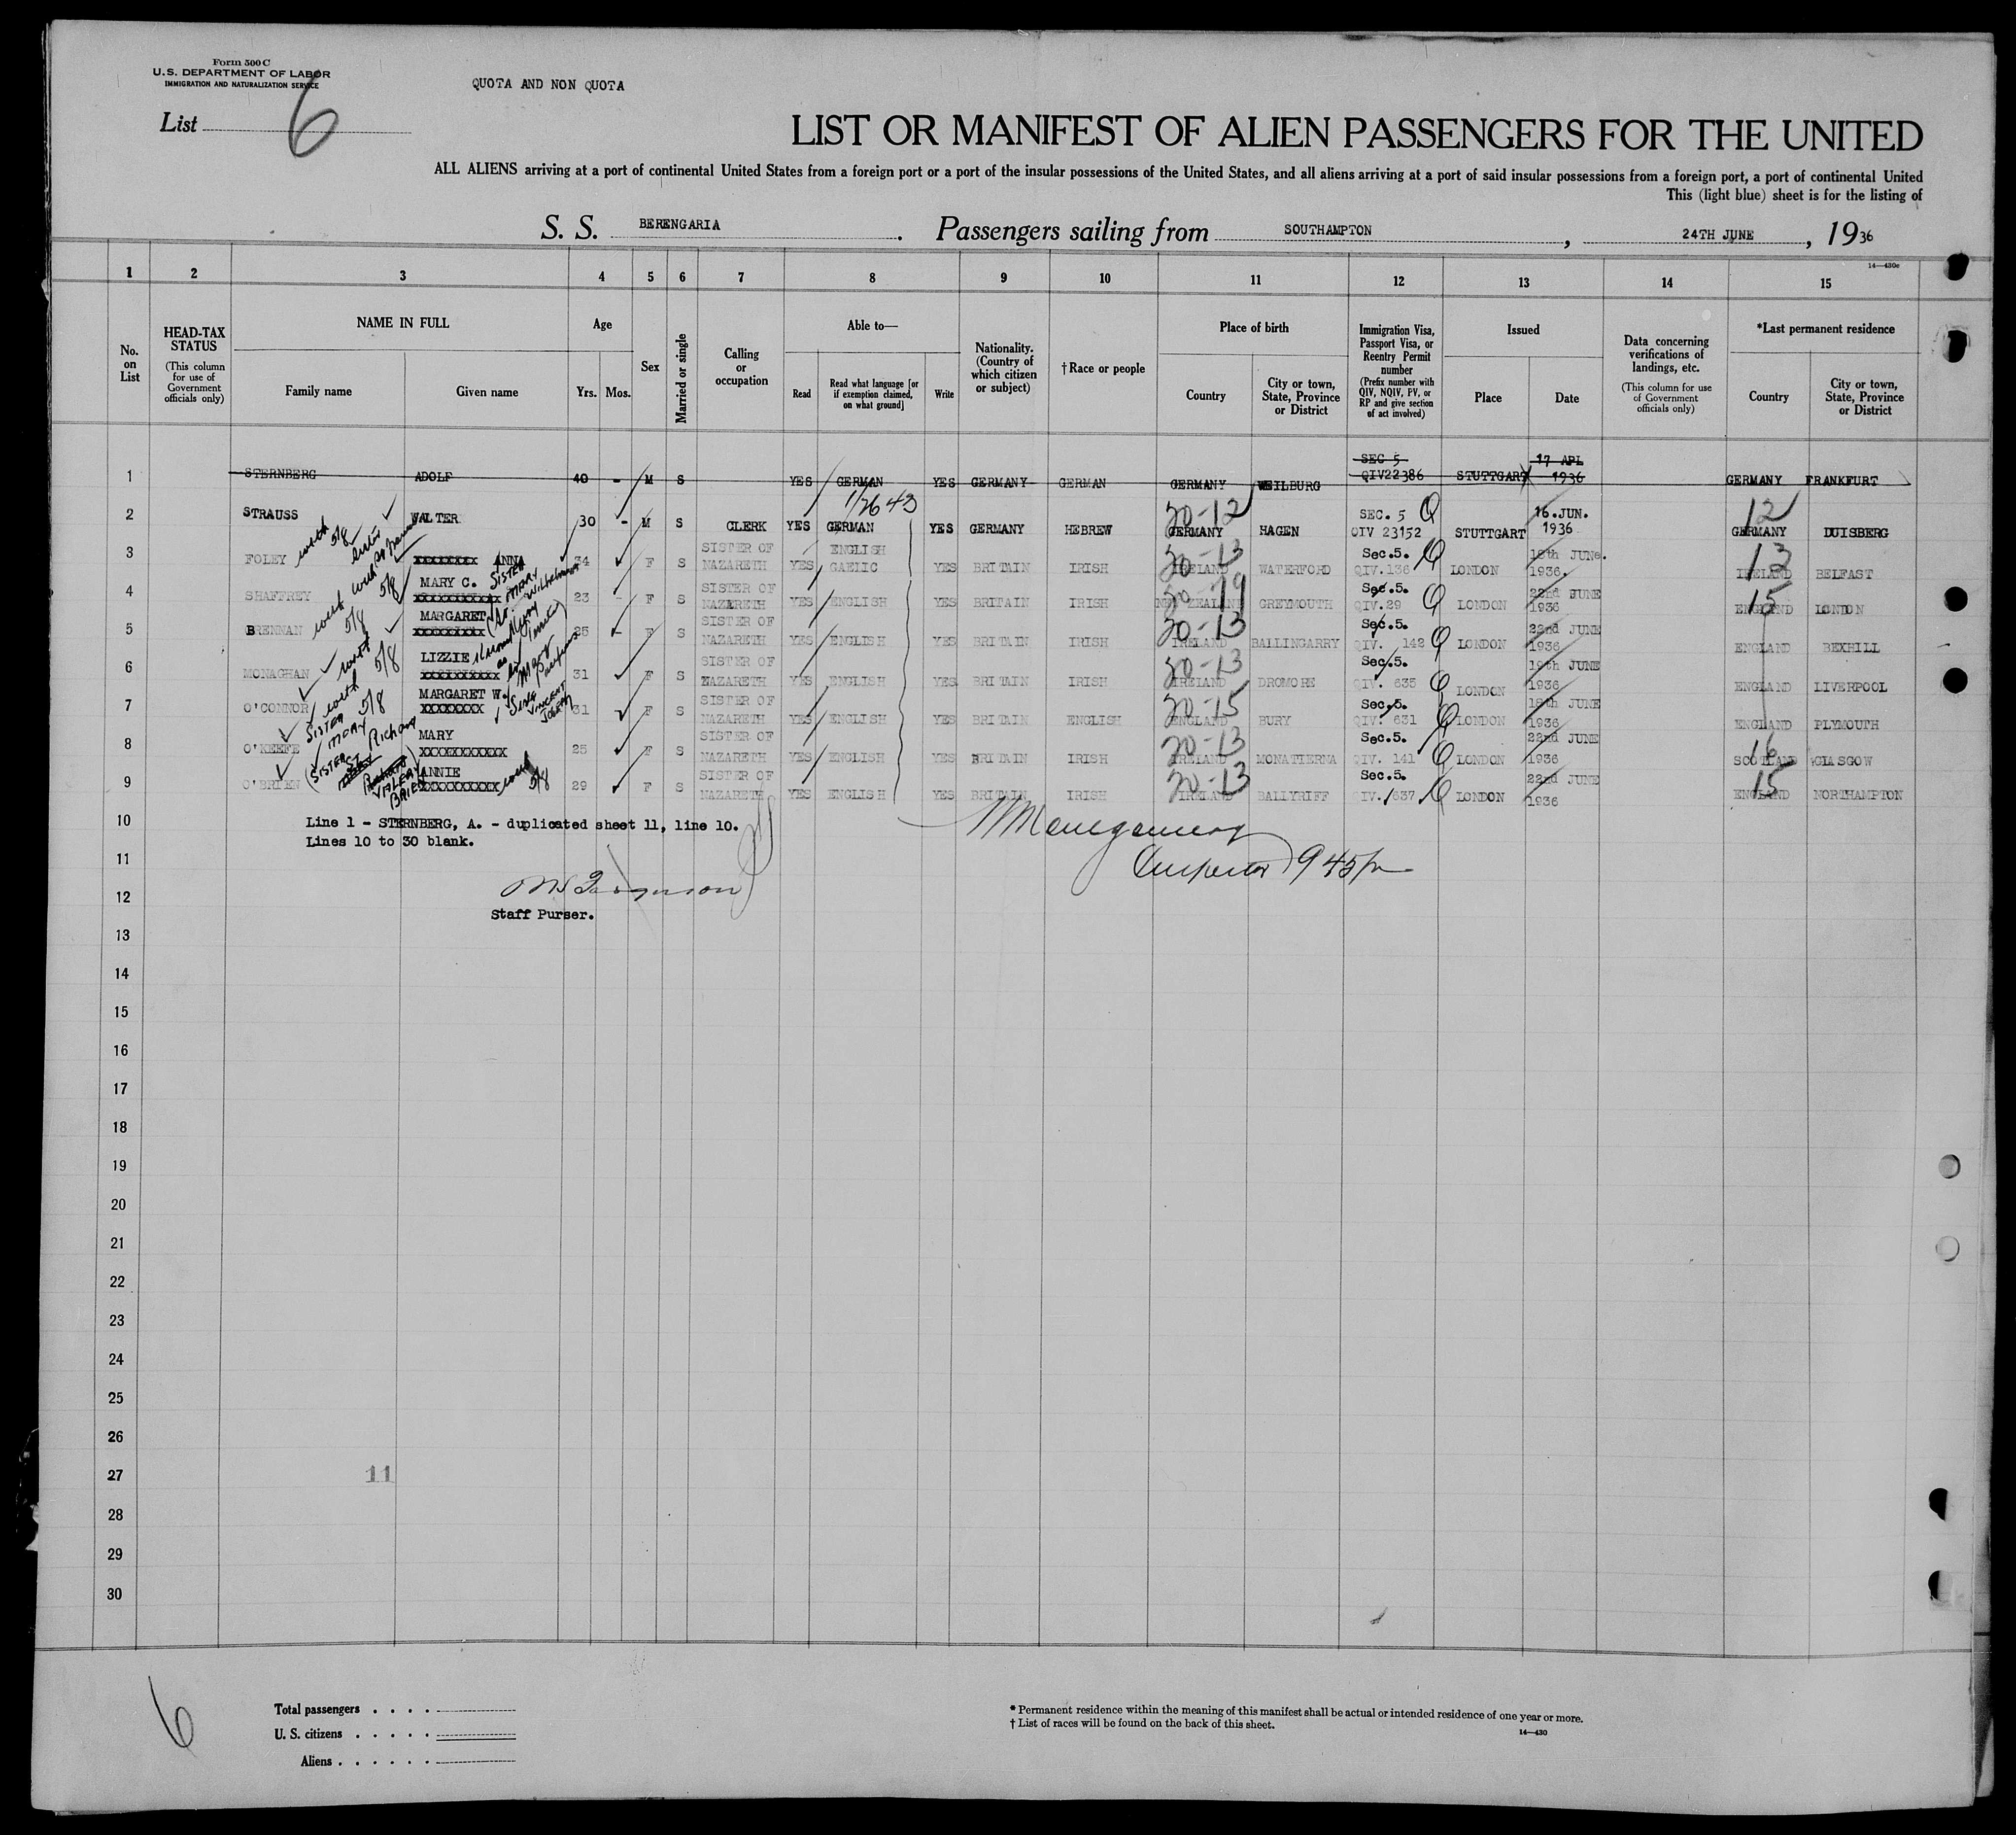 Form 500 C
U.S. DEPARTMENT OF LABOR
IMMIGRATION AND NATURALIZATION SERVICE
List 6
QUOTA AND NON QUOTA
LIST OR MANIFEST OF ALIEN PASSENGERS FOR THE UNITED
ALL ALIENS arriving at a port of continental United States from a foreign port or a port of the insular possessions of the United States, and all aliens arriving at a port of said insular possessions from a foreign port, a port of continental United
This (light blue) sheet is for the listing of
S. S. BERENGARIA. Passengers sailing from SOUTHAMPTON, 24TH JUNE, 1936
14—430c
1 2 3 4 5 6 7 8 9 10 11 12 13 14 15
No. on List
HEAD-TAX STATUS
(This column for use of Government officials only)
NAME IN FULL
Family name
Given name
Age
Yrs. Mos.
Sex
Married or single
Calling or occupation
Able to—
Read
Read what language [or if exemption claimed, on what ground]
Write
Nationality. (Country of which citizen or subject)
† Race or people
Place of birth
Country
City or town, State, Province or District
Immigration Visa, Passport Visa, or Reentry Permit number
(Prefix number with QIV, NQIV, PV, or RP and give section of act involved)
Issued
Place
Date
Data concerning verifications of landings, etc.
(This column for use of Government officials only)
*Last permanent residence
Country
City or town, State, Province or District
1 STERNBERG ADOLF 40 - M S YES GERMAN YES GERMANY GERMAN GERMANY WEILBURG SEC 5 QIV22386 STUTTGART 17 APL 1936 GERMANY FRANKFURT
2 STRAUSS WALTER 30 - M S CLERK YES GERMAN YES GERMANY HEBREW GERMANY HAGEN SEC. 5 QIV 23152 STUTTGART 16.JUN. 1936 GERMANY DUISBERG
3 FOLEY XXXXXXXX ANNA 34 F S SISTER OF NAZARETH YES ENGLISH GAELIC YES BRITAIN IRISH IRELAND WATERFORD Sec.5. QIV.136 LONDON 18th JUNE. 1936. IRELAND BELFAST
4 SHAFFREY MARY C. 23 F S SISTER OF NAZARETH YES ENGLISH YES BRITAIN IRISH NEW ZEALAND GREYMOUTH Sec.5. QIV.29 LONDON 22nd JUNE 1936 ENGLAND LONDON
5 BRENNAN MARGARET 25 F S SISTER OF NAZARETH YES ENGLISH YES BRITAIN IRISH IRELAND BALLINGARRY Sec.5. QIV. 142 LONDON 22nd JUNE 1936 ENGLAND BEXHILL
6 MONAGHAN LIZZIE 31 F S SISTER OF NAZARETH YES ENGLISH YES BRITAIN IRISH IRELAND DROMORE Sec.5. QIV. 635 LONDON 19th JUNE 1936 ENGLAND LIVERPOOL
7 O'CONNOR MARGARET W. XXXXXXXX 31 F S SISTER OF NAZARETH YES ENGLISH YES BRITAIN ENGLISH ENGLAND BURY Sec.5. QIV. 631 LONDON 18th JUNE 1936 ENGLAND PLYMOUTH
8 O'KEEFE MARY XXXXXXXXXXX 25 F S SISTER OF NAZARETH YES ENGLISH YES BRITAIN IRISH IRELAND MONATIERNA Sec.5. QIV. 141 LONDON 22nd JUNE 1936 SCOTLAND GLASGOW
9 O'BRIEN ANNIE XXXXXXXXXX 29 F S SISTER OF NAZARETH YES ENGLISH YES BRITAIN IRISH IRELAND BALLYRIFF Sec.5. QIV. 637 LONDON 22nd JUNE 1936 ENGLAND NORTHAMPTON
10 Line 1 - STERNBERG, A. - duplicated sheet 11, line 10.
Lines 10 to 30 blank.
Montgomery
11 Inspector 945p
12
Staff Purser.
13
14
15
16
17
18
19
20
21
22
23
24
25
26
27 11
28
29
30
6
Total passengers
U. S. citizens
Aliens
* Permanent residence within the meaning of this manifest shall be actual or intended residence of one year or more.
† List of races will be found on the back of this sheet.
14—430